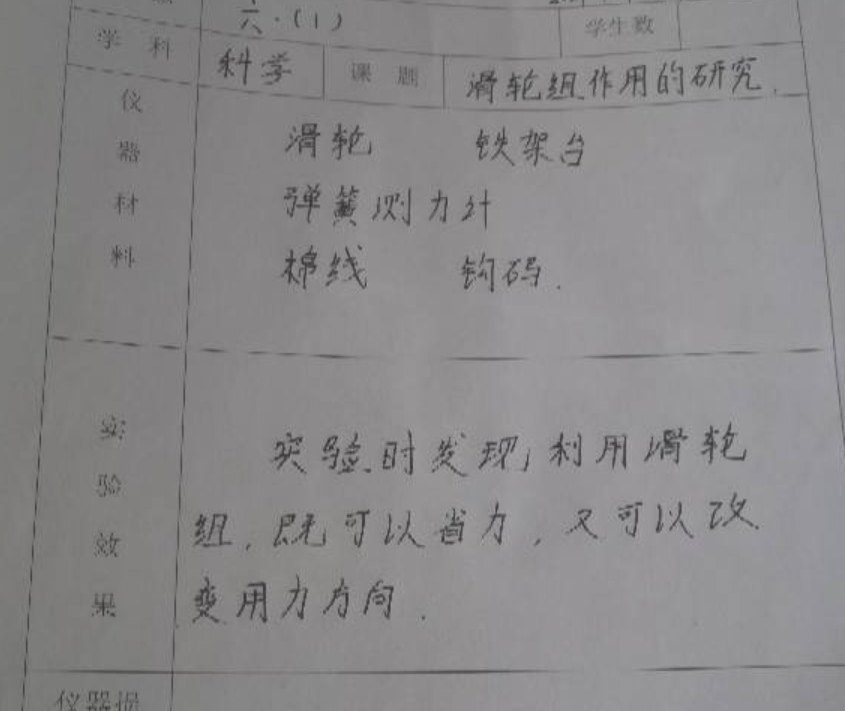 六.(1) 学生数
学科 科学 课题 滑轮组作用的研究.
仪器材料
滑轮 铁架台
弹簧测力计
棉线 钩码.
实验效果
实验时发现,利用滑轮
组,既可以省力,又可以改
变用力方向.
仪器损